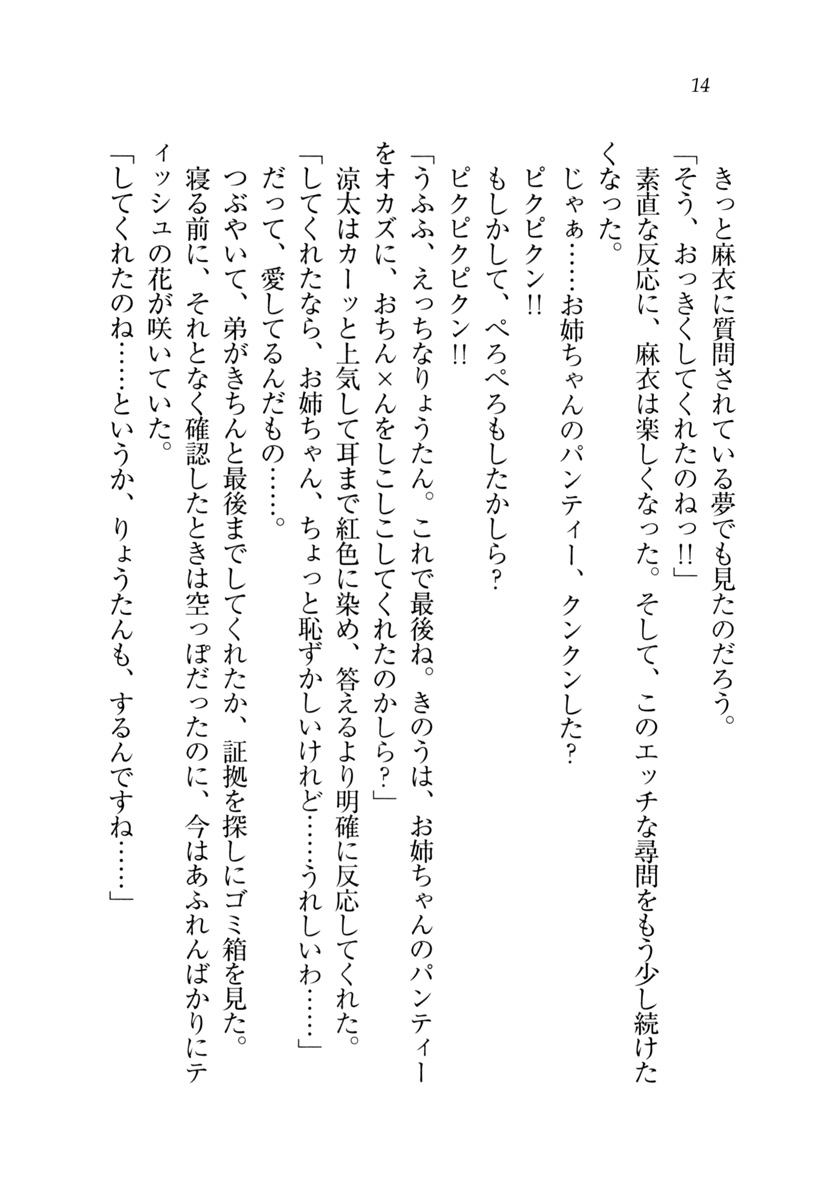 14
きっと麻衣に質問されている夢でも見たのだろう。
「そう、おっきくしてくれたのねっ!!」
素直な反応に、麻衣は楽しくなった。そして、このエッチな尋問をもう少し続けた
くなった。
じゃぁ……お姉ちゃんのパンティー、クンクンした?
ピクピクン!!
もしかして、ぺろぺろもしたかしら?
ピクピクピクン!!
「うふふ、えっちなりょうたん。これで最後ね。きのうは、お姉ちゃんのパンティー
をオカズに、おちん×んをしこしこしてくれたのかしら?」
涼太はカーッと上気して耳まで紅色に染め、答えるより明確に反応してくれた。
「してくれたなら、お姉ちゃん、ちょっと恥ずかしいけれど……うれしいわ……」
だって、愛してるんだもの……。
つぶやいて、弟がきちんと最後までしてくれたか、証拠を探しにゴミ箱を見た。
寝る前に、それとなく確認したときは空っぽだったのに、今はあふれんばかりにテ
ィッシュの花が咲いていた。
「してくれたのね……というか、りょうたんも、するんですね……」